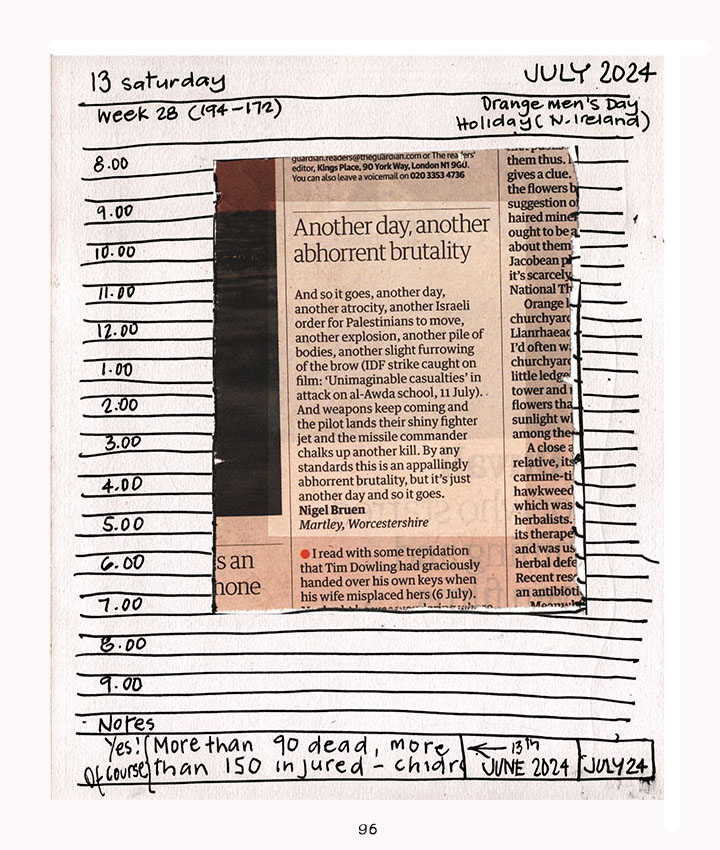 13 saturday
JULY 2024
Week 28 (194-172)
Orange men's Day
Holiday (N-Ireland)
8.00
9.00
10.00
11.00
12.00
1.00
2.00
3.00
4.00
5.00
6.00
7.00
8.00
9.00
guardian.readers@theguardian.com or The readers'
editor, Kings Place, 90 York Way, London N1 9GU.
You can also leave a voicemail on 020 3353 4736
Another day, another
abhorrent brutality
And so it goes, another day,
another atrocity, another Israeli
order for Palestinians to move,
another explosion, another pile of
bodies, another slight furrowing
of the brow (IDF strike caught on
film: 'Unimaginable casualties' in
attack on al-Awda school, 11 July).
And weapons keep coming and
the pilot lands their shiny fighter
jet and the missile commander
chalks up another kill. By any
standards this is an appallingly
abhorrent brutality, but it's just
another day and so it goes.
Nigel Bruen
Martley, Worcestershire
I read with some trepidation
that Tim Dowling had graciously
handed over his own keys when
his wife misplaced hers (6 July).
s an
hone
them thus.
gives a clue.
the flowers b
suggestion o
haired mine
ought to be a
about them
Jacobean pl
it's scarcely
National Th
Orange l
churchyard
Llanrhaead
I'd often w
churchyard
little ledge
tower and
flowers tha
sunlight wh
among the
A close a
relative, its
carmine-ti
hawkweed
which was
herbalists.
its therape
and was us
herbal defe
Recent rese
an antibioti
Meanwh
Notes
Yes!
Of course
More than 90 dead, more
than 150 injured - chidre
← 13th
JUNE 2024
JULY 24
96